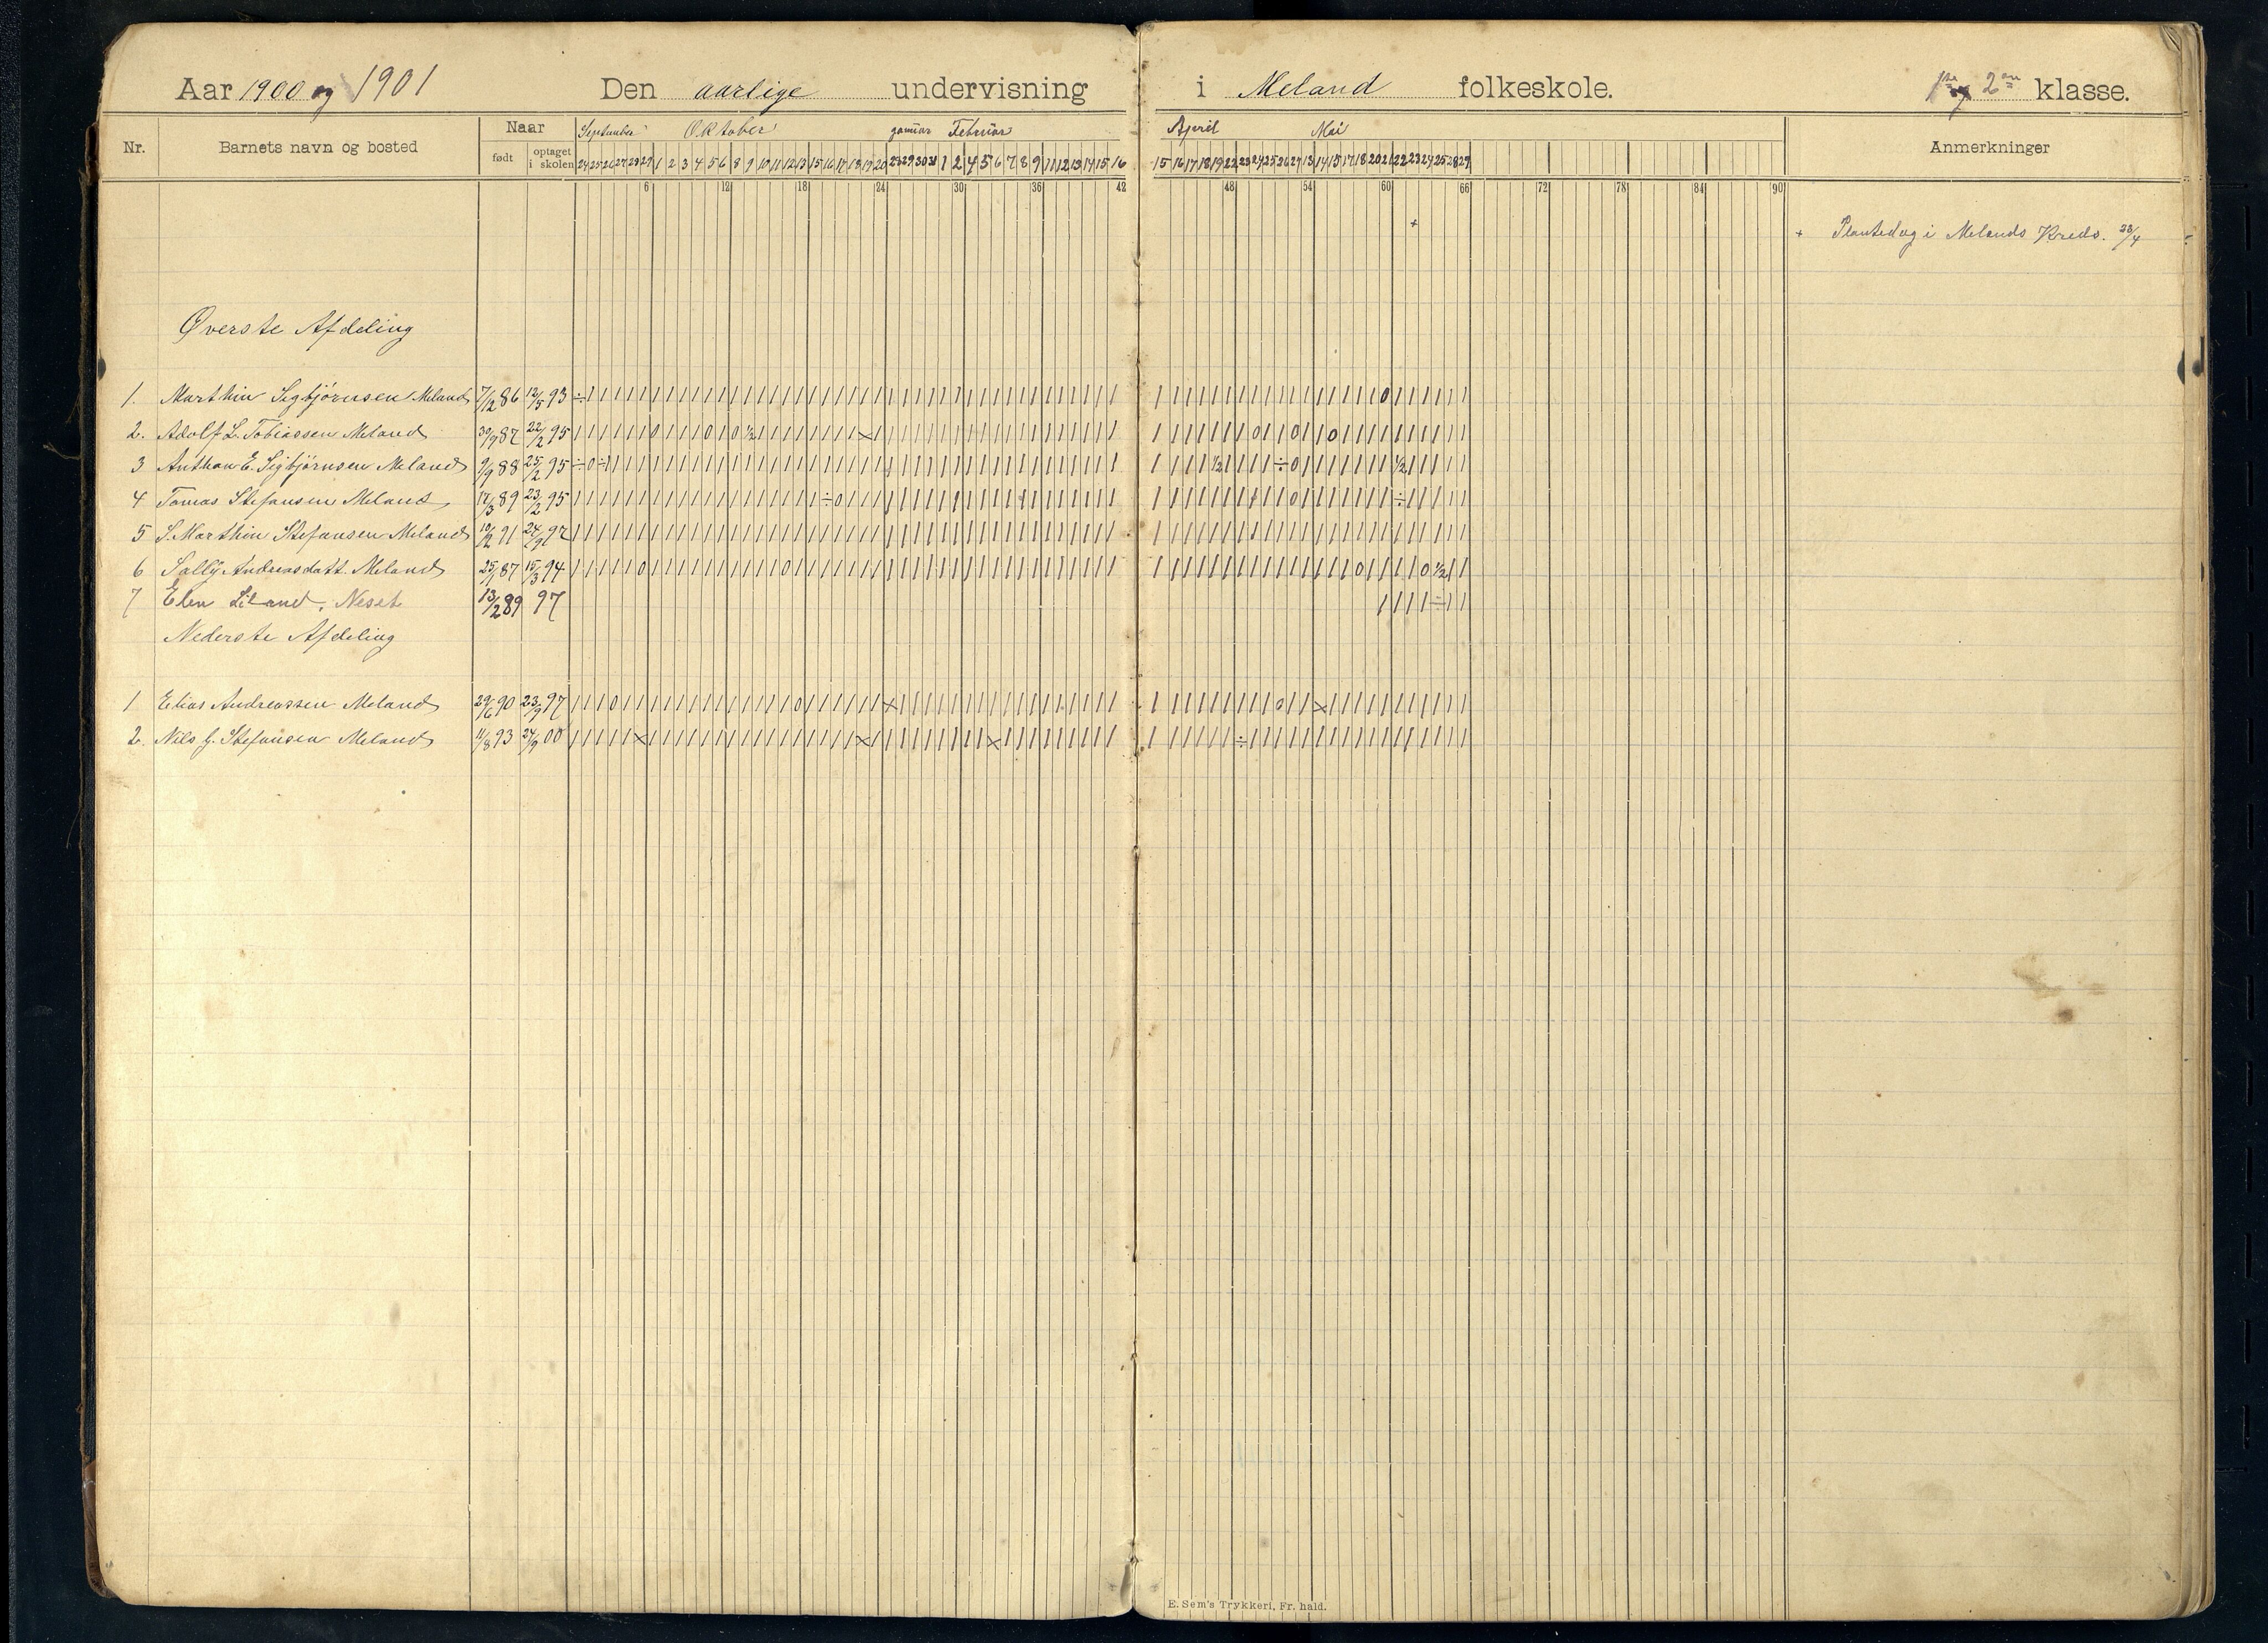 Aar 1900 og 1901 Den aarlige undervisning i Meland folkeskole. 1ste og 2en klasse.
Nr. Barnets navn og bosted Naar født optaget i skolen September Oktober januar Februar April Mai Anmerkninger
24 25 26 27 28 29 1 2 3 4 5 6 8 9 10 11 12 13 15 16 17 18 19 20 28 29 30 31 1 2 4 5 6 7 8 9 11 12 13 14 15 16 15 16 17 18 19 22 23 24 25 26 27 13 14 15 17 18 20 21 22 23 24 25 28 29
6 12 18 24 30 36 42 48 54 60 66 72 78 84 90
+ + Plantedag i Melands Kreds. 23/4
Øverste Afdeling
1. Marthin Sigbjørnsen Meland 7/12 86 12/5 93
2. Adolf L. Tobiassen Meland 30/9 87 22/2 95
3 Anthon E. Sigbjørnsen Meland 9/9 88 25/2 95
4 Tomas Stefansen Meland 17/3 89 23/2 95
5 S. Marthin Stefansen Meland 10/2 91 24/9 97
6 Sally Andreasdatt. Meland 25/1 87 15/3 94
7 Elen Liland, Neset 13/2 89 97
Nederste Afdeling
1 Elias Andreassen Meland 29/6 90 23/9 97
2. Nils J. Stefansen Meland 11/8 93 24/9 00
E. Sem's Trykkeri, Fr. hald.